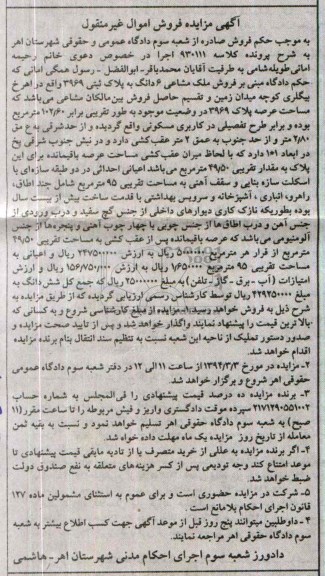 آگهی مزایده فروش اموال غیرمنقول
به موجب حکم فروش صادره از شعبه سوم دادگاه عمومی و حقوقی شهرستان اهر
به شرح پرونده کلاسه ۹۳۰۱۱۱ اجرا در خصوص دعوی خانم رحیمه
امانی‌طویله‌شامی به طرفیت آقایان محمدباقر-ابوالفضل - رسول همگی امانی که
حکم دادگاه مبنی بر فروش ملک مشاعی ۶ دانگ به پلاک ثبتی ۳۹۶۹ واقع در اهر خ
بیگلری کوچه میدان زمین و تقسیم حاصل فروش بین مالکان مشاعی می‌باشد که
مساحت عرصه پلاک ۳۹۶۹ در وضعیت موجود به طور تقریبی ۱۰۲/۶۰ مترمربع
بوده و برابر طرح تفصیلی در کاربری مسکونی واقع گردیده و از حدشرقی به ع مق
۲/۸۰ متر و از حد جنوب به عمق ۲ متر عقب‌کشی دارد و در نبش جنوب شرقی پخ
در ابعاد ۱۰۱ دارد که با لحاظ میزان عقب‌کشی مساحت عرصه باقیمانده برای این
پلاک به مقدار تقریبی ۴۹/۵۰ مترمربع می‌باشد اعیانی احداثی در دو طبقه سازه‌ای با
اسکلت سازه بنایی و سقف آهنی به مساحت تقریبی ۹۵ مترمربع شامل چند اطاق،
راهرو، انباری ، آشپزخانه و سرویس بهداشتی با قدمت ساخت بیش از بیست سال
بوده بطوریکه نازک کاری دیوارهای داخلی از جنس گچ سفید و درب ورودی از
جنس آهن و درب اطاق‌ها از جنس چوبی با چهار چوب آهنی و پنجره‌ها از جنس
آلومنیومی می‌باشد که عرصه باقیمانده پس از عقب کشی به مساحت تقریبی ۴۹/۵۰
مترمربع از قرار هر مترمربع ۵۰۰۰۰۰۰ ریال به ارزش ۲۴۷۵۰۰۰۰۰ ریال و اعیانی به
مساحت تقریبی ۹۵ مترمربع ۱۶۵۰۰۰۰ ریال به ارزش ۱۵۶/۷۵۰/۰۰۰ ریال و ارزش
امتیازات ( آب - برق - گاز - تلفن) به مبلغ ۲۵۰۰۰۰۰۰ ریال که جمع کل شش دانگ به
مبلغ ۴۲۹۲۵۰۰۰۰ ریال توسط کارشناس رسمی ارزیابی گردیده که از طریق مزایده به
شرح ذیل به فروش خواهد رسید.۱-مزایده از مبلغ کارشناسی شروع و به کسانی که
بالا ترین قیمت را پیشنهاد نمایند واگذار خواهد شد و پس از تایید صحت مزایده و
صدور دستور تملیک از ناحیه این شعبه نسبت به تنظیم سند انتقال بنام برنده مزایده
اقدام خواهد شد.
۲- مزایده در مورخ ۱۳۹۴/۳/۳ از ساعت ۱۱ الی ۱۲ در دفتر شعبه سوم دادگاه عمومی
حقوقی اهر شروع و برگزار خواهد شد.
۳- برنده مزایده ده درصد قیمت پیشنهادی را فی‌المجلس به شماره حساب
۲۱۷۱۲۹۰۵۵۱۰۰۲ سپرده موقت دادگستری واریز و فیش مربوطه را تا ساعت مقرر (۱۱
صبح) به شعبه سوم دادگاه حقوقی اهر تسلیم خواهد نمود و نسبت به بقیه ثمن
معامله از تاریخ روز مزایده یک ماه مهلت داده خواه شد.
۴-اگر برنده مزایده به عللی از خرید متصرف یا از تادیه مابقی قیمت پیشنهادی تا
موعد امتناع کند وجه تودیعی پس از کسر هزینه‌های متعلقه به نفع صندوق دولت
ضبط خواهد شد.
۵- شرکت در مزایده حضوری است و برای عموم به استثنای مشمولین ماده ۱۲۷
قانون اجرای احکام بلامانع است .
۴ - داوطلبین میتوانند پنج روز قبل از موعد آگهی جهت کسب اطلاع بیشتر به شعبه
سوم دادگاه حقوقی اهر مراجعه نمایند.
دادورز شعبه سوم اجرای احکام مدنی شهرستان اهر- هاشمی